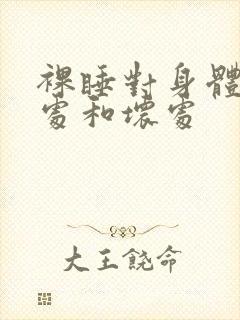 裸睡對身體
處和壞處
大王饒命